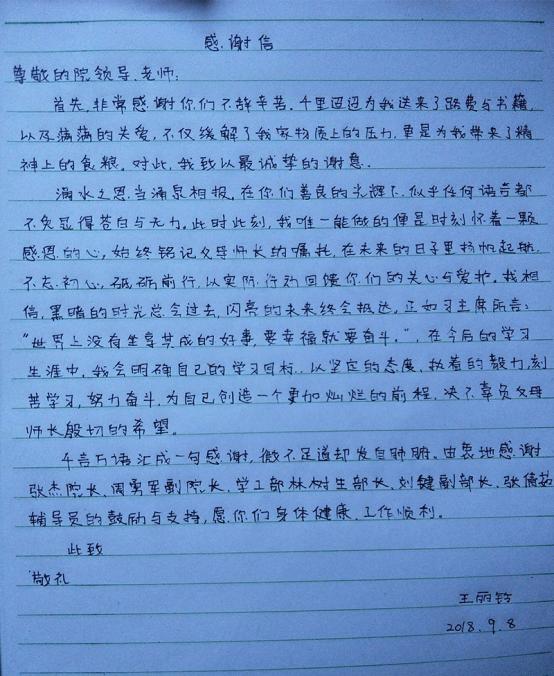 感谢信
尊敬的院领导、老师:
首先,非常感谢你们不辞辛苦,千里迢迢为我送来了路费与书籍,
以及满满的关爱,不仅缓解了我家物质上的压力,更是为我带来了精
神上的食粮。对此,我致以最诚挚的谢意.
滴水之恩,当涌泉相报。在你们善良的光辉下,似乎任何语言都
不免显得苍白与无力。此时此刻,我唯一能做的便是时刻怀着一颗
感恩的心,始终铭记父母师长的嘱托,在未来的日子里扬帆起航,
不忘初心,砥砺前行,以实际行动回馈你们的关心与爱护。我相
信,黑暗的时光总会过去,闪亮的未来终会抵达,正如习主席所言:
“世界上没有坐享其成的好事,要幸福就要奋斗。”,在今后的学习
生涯中,我会明确自己的学习目标,以坚定的态度,执着的毅力,刻
苦学习,努力奋斗,为自己创造一个更加灿烂的前程,决不辜负父母
师长殷切的希望。
千言万语汇成一句感谢,微不足道却发自肺腑。由衷地感谢
张杰院长、周勇军副院长,学工部林树生部长、刘键副部长,张倩茹
辅导员的鼓励与支持,愿你们身体健康、工作顺利。
此致
敬礼
王丽
2018.9.8